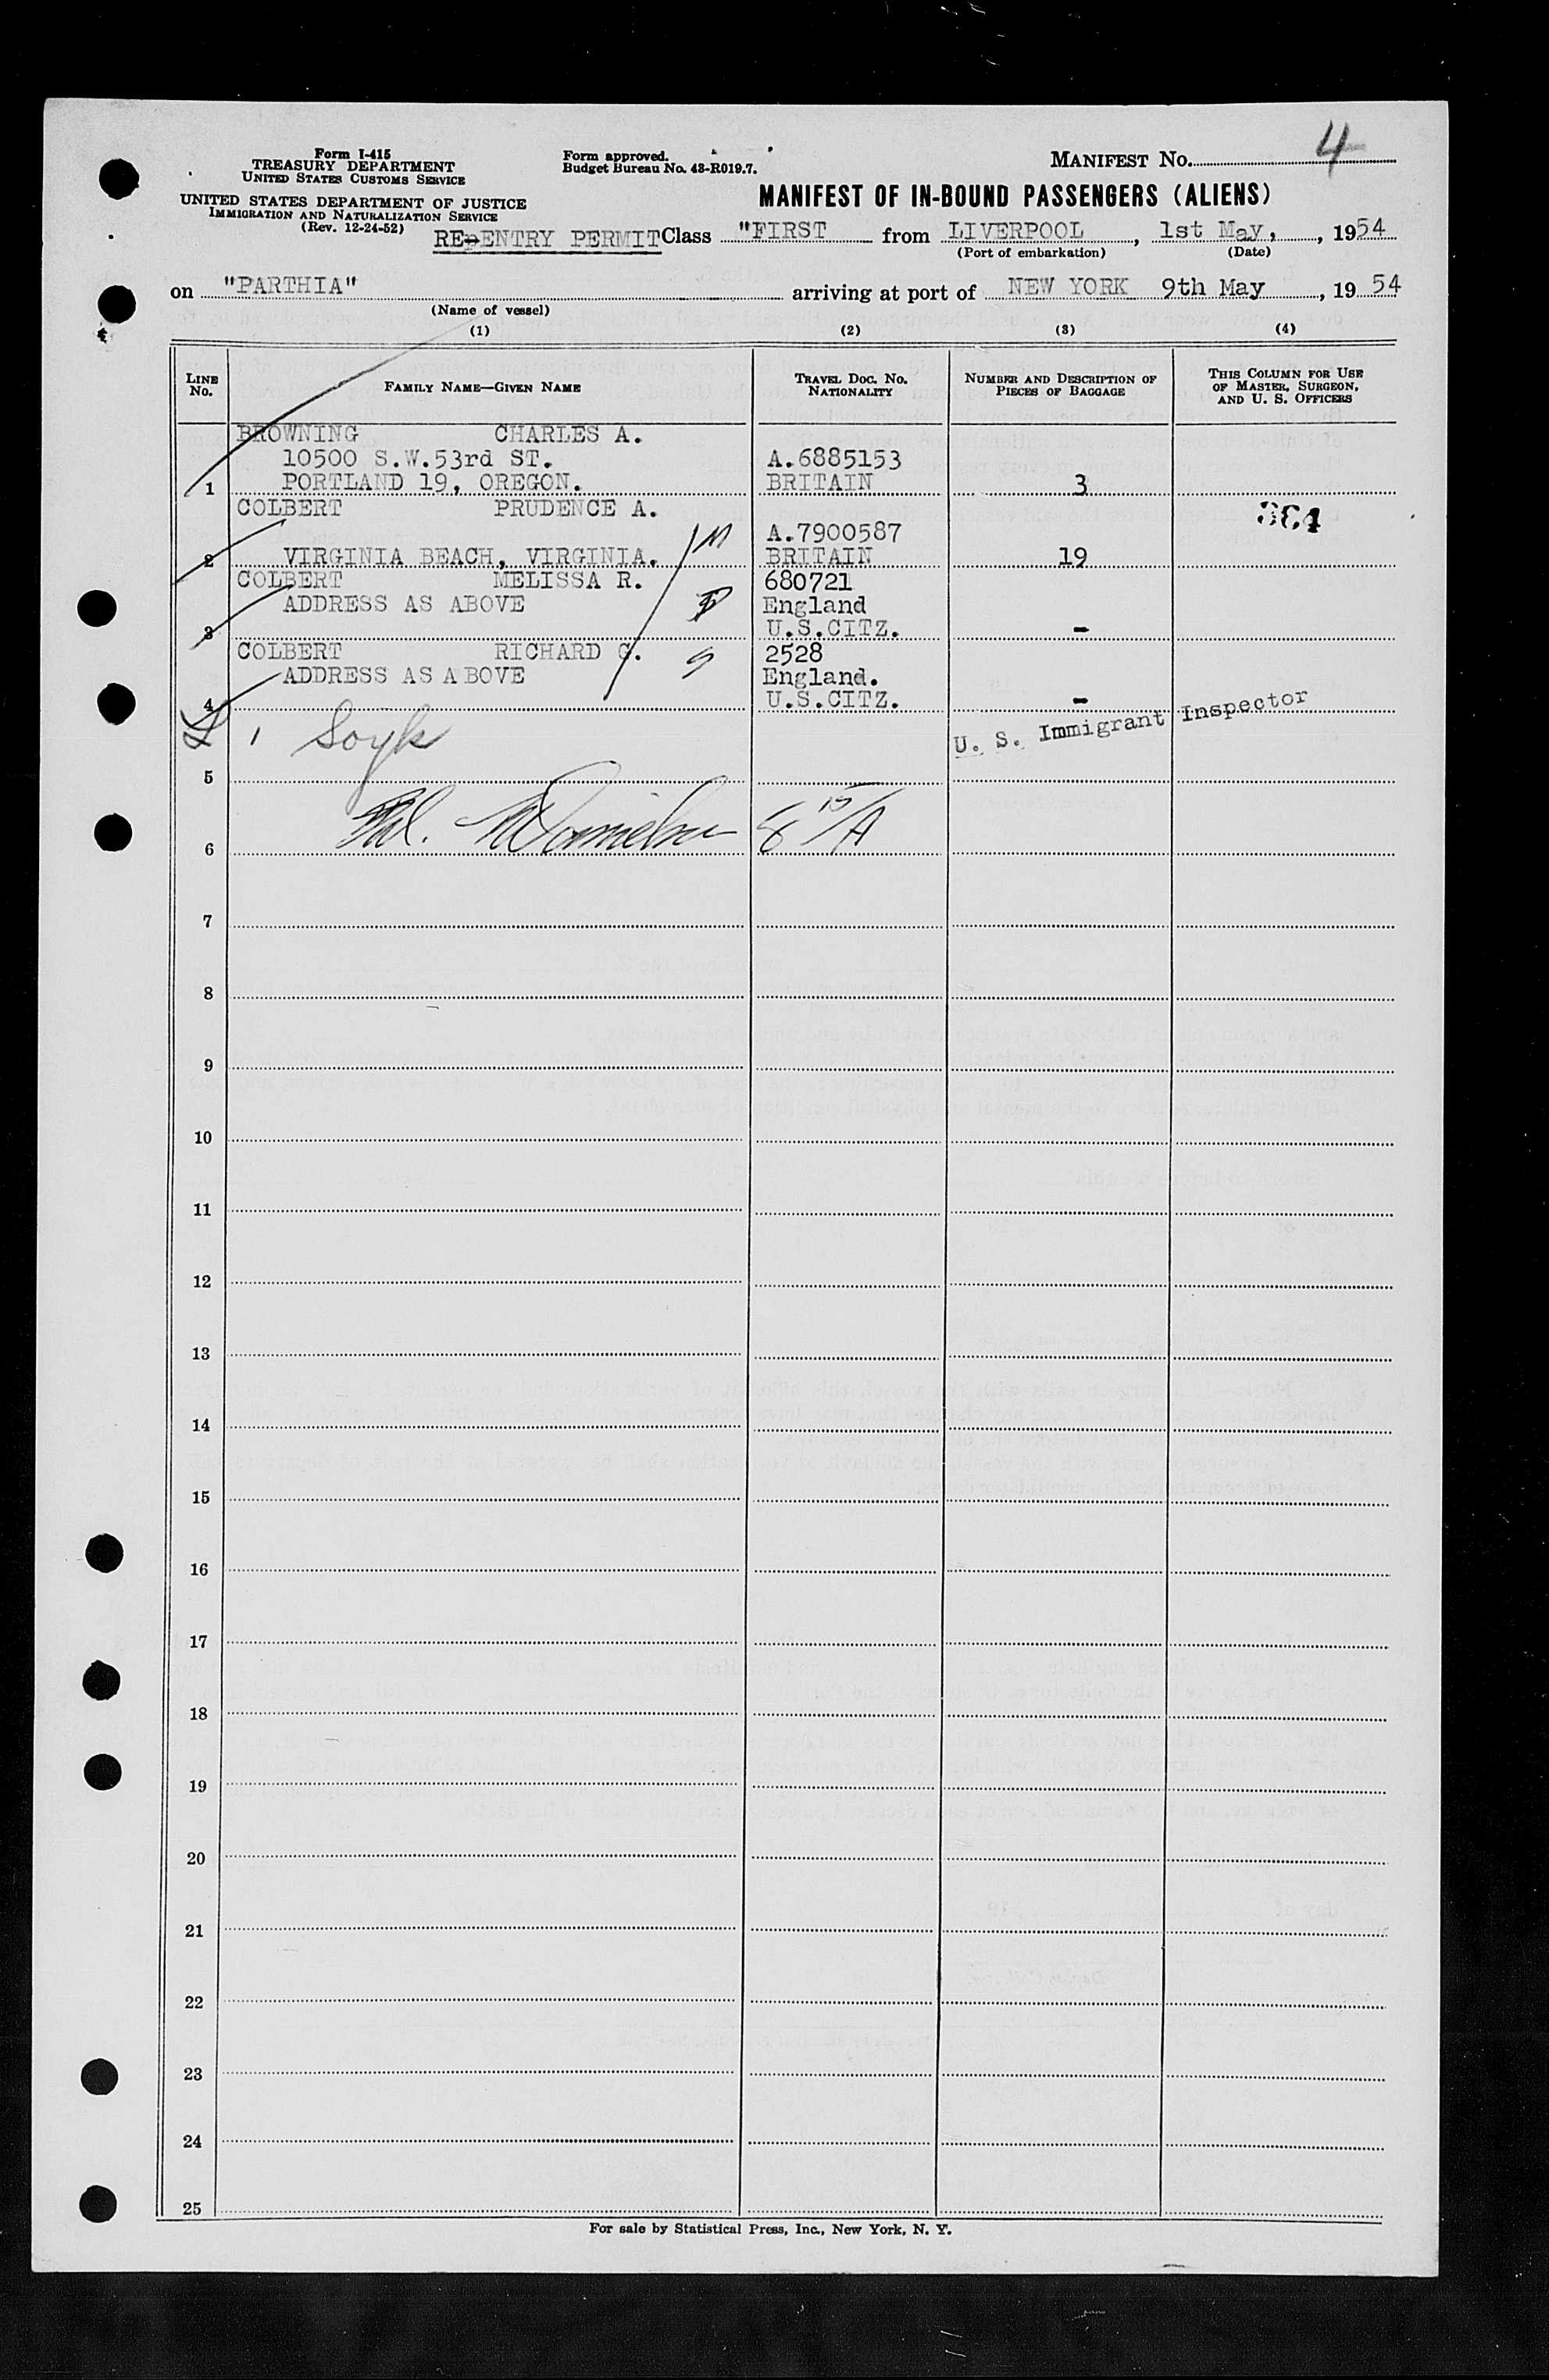 Form I-415
TREASURY DEPARTMENT
UNITED STATES CUSTOMS SERVICE
UNITED STATES DEPARTMENT OF JUSTICE
IMMIGRATION AND NATURALIZATION SERVICE
(Rev. 12-24-52)
Form approved.
Budget Bureau No. 43-R019.7.
MANIFEST NO. 4
MANIFEST OF IN-BOUND PASSENGERS (ALIENS)
RE-ENTRY PERMIT Class "FIRST from LIVERPOOL, 1st May, , 1954
(Port of embarkation) (Date)
on "PARTHIA" arriving at port of NEW YORK 9th May , 19 54
(Name of vessel)
(1) (2) (3) (4)
LINE NO.
FAMILY NAME—GIVEN NAME
TRAVEL DOC. NO. NATIONALITY
NUMBER AND DESCRIPTION OF PIECES OF BAGGAGE
THIS COLUMN FOR USE OF MASTER, SURGEON, AND U. S. OFFICERS
BROWNING CHARLES A.
10500 S.W.53rd ST. A.6885153
1 PORTLAND 19, OREGON. BRITAIN 3
COLBERT PRUDENCE A.
A.7900587
2 VIRGINIA BEACH, VIRGINIA. BRITAIN 19
COLBERT MELISSA R. 680721
ADDRESS AS ABOVE England
3 U.S.CITZ. -
COLBERT RICHARD G. 2528
ADDRESS AS ABOVE England.
4 U.S.CITZ. -
U. S. Immigrant Inspector
5
6
7
8
9
10
11
12
13
14
15
16
17
18
19
20
21
22
23
24
25
For sale by Statistical Press, Inc., New York, N. Y.